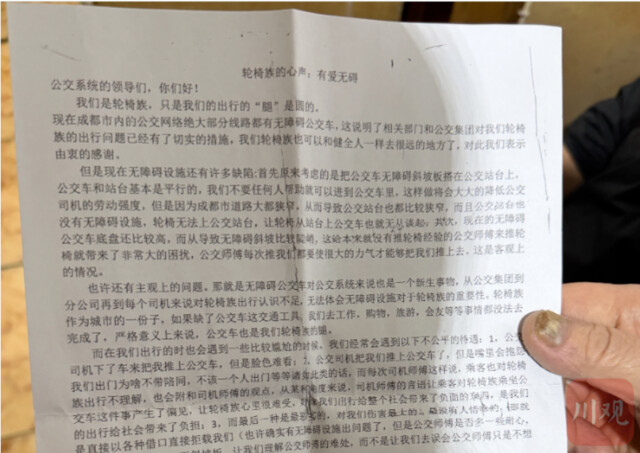 轮椅族的心声：有爱无碍
公交系统的领导们，你们好！
我们是轮椅族，只是我们的出行的“腿”是圆的。
现在成都市内的公交网络绝大部分线路都有无障碍公交车，这说明了相关部门和公交集团对我们轮椅
族的出行问题已经有了切实的措施，我们轮椅族也可以和健全人一样去很远的地方了，对此我们表示
由衷的感谢。
但是现在无障碍设施还有许多缺陷：首先原来考虑的是把公交车无障碍斜坡板搭在公交站台上，
公交车和站台基本是平行的，我们不要任何人帮助就可以进到公交车里，这样做将会大大的降低公交
司机的劳动强度，但是因为成都市道路大都狭窄，从而导致公交站台也都比较狭窄，而且公交站台也
没有无障碍设施，轮椅无法上公交站台，让轮椅从站台上公交车也就无从谈起；其次，现在的无障碍
公交车底盘还比较高，而从导致无障碍斜坡比较陡峭，这给本来就没有推轮椅经验的公交师傅来推轮
椅就带来了非常大的困扰，公交师傅每次推我们都要使很大的力气才能够把我们推上去，这是客观上
的情况。
也许还有主观上的问题，那就是无障碍公交车对公交系统来说也是一个新生事物，从公交集团到
分公司再到每个司机来说对轮椅出行认识不足，无法体会无障碍设施对于轮椅族的重要性。轮椅族
作为城市的一份子，如果缺了公交车这交通工具，我们去工作，购物，旅游，会友等等事情都没法去
完成了，严格意义上来说，公交车也是我们轮椅族的腿。
而在我们出行的时也会遇到一些比较尴尬的时候，我们经常会遇到以下不公平的待遇：1，公交
司机下了车来把我推上公交车了，但是脸色难看；2，公交司机把我们推上公交车了，但是嘴里会抱怨
我们出门为啥不带陪同，不该一个人出门等等诸如此类的话，而每次司机师傅这样说，乘客也对轮椅
族出行不理解，也会附和司机师傅的观点，从某种角度来说，司机师傅的言语让乘客对轮椅族乘坐公
交车这件事产生了偏见，让轮椅族心里很难受，我们出行给整个社会带来了负面的东西，是我们
的出行给社会带来了负担；3，而最后一种是最恶劣的，对我们伤害最上的，最没有人情
是直接以各种借口直接拒载我们（也许确实有无障碍设施出问题了，但是公交师傅是否多一些耐心，
让我们理解公交师傅的难处，而不是让我们去误会公交师傅只是不想
川观